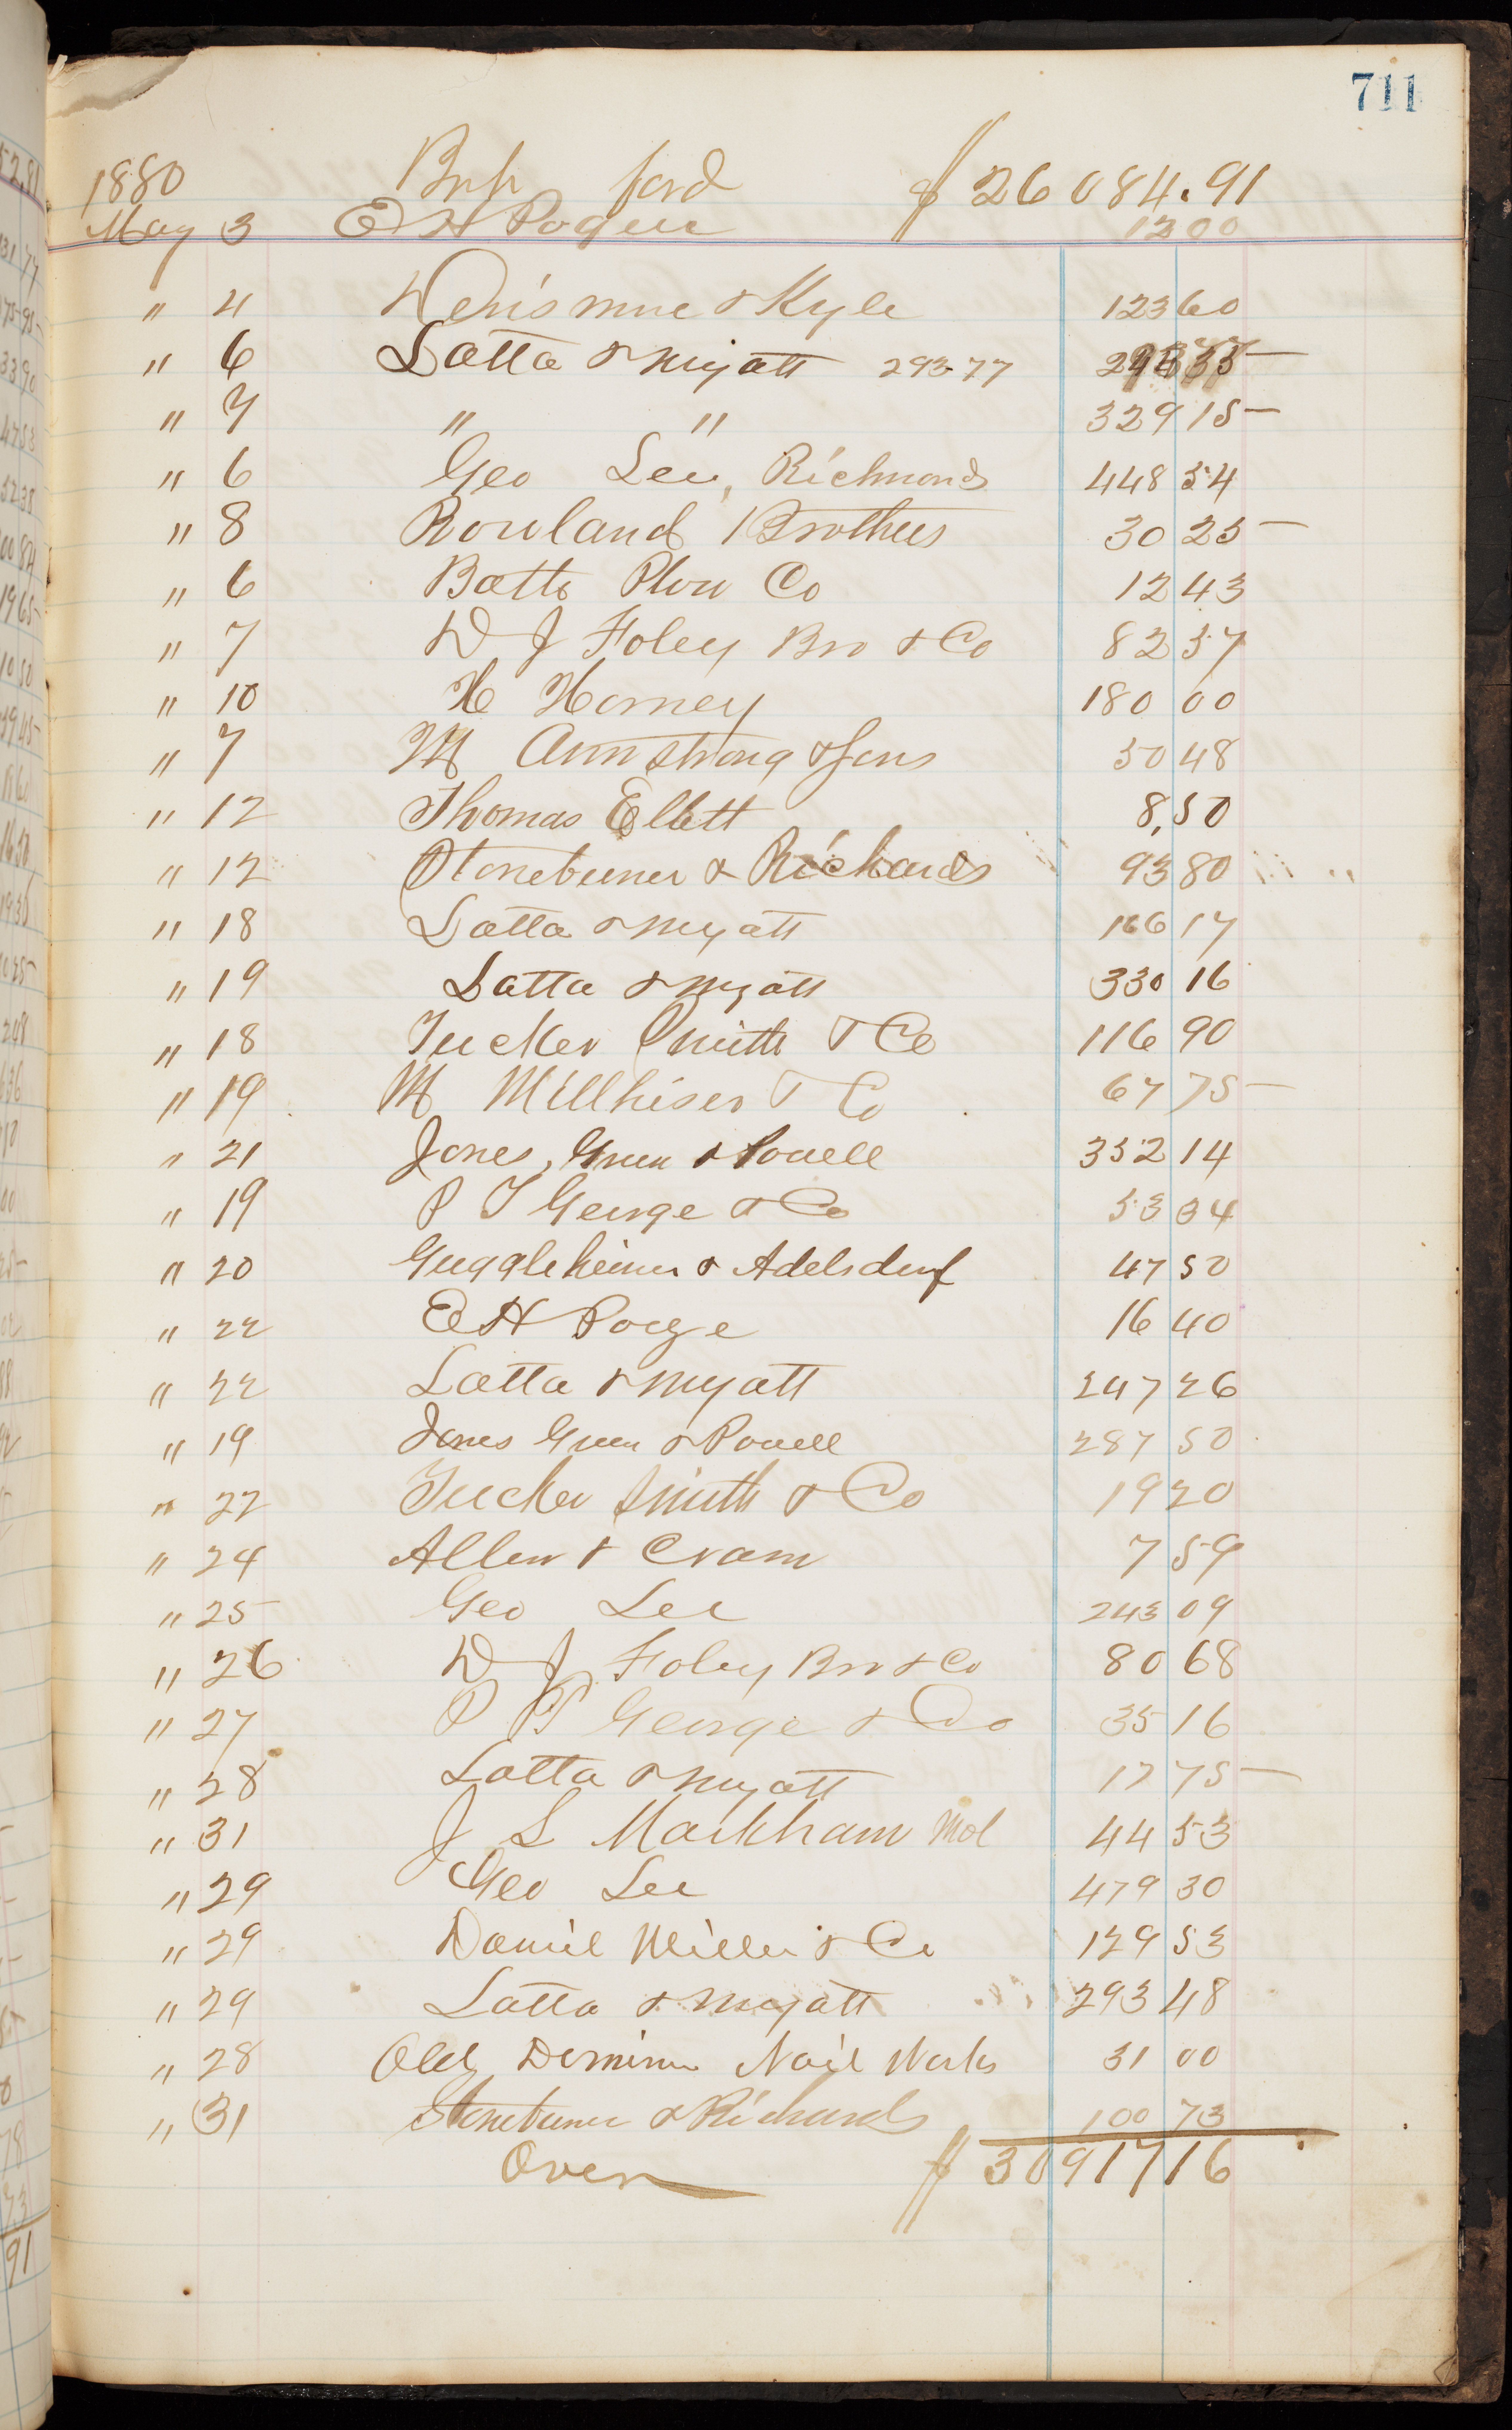 711
1880 Brh ford $26084.91
May 3 E H Pogue 12 00
" 4 & Kyle 123 60
" 6 Latta & Myatt 293.77
" 7 " " 329 15
" 6 Geo Lee, Richmond 448 54
" 8 Rowland Brothers 30 25
" 6 Batts Plow Co 12 43
" 7 D J Foley Bro & Co 82 57
" 10 H Horney 180 00
" 7 M Armstrong & Sons 50 48
" 12 Thomas Ellett 8,50
" 12 Stonebuner & Richards 93 80
" 18 Latta & Myatt 166 17
" 19 Latta & Myatt 330 16
" 18 Tucker Smith & Co 116 90
" 19 M Millhiser & Co 67 75
" 21 Jones, Green & Powell 352 14
" 19 P T George & Co 53 34
" 20 Guggleheimer & Adelsdorf 47 50
" 22 E H Pogue 16 40
" 22 Latta & Myatt 247 26
" 19 Jones Green & Powell 287 50
" 22 Tucker Smith & Co 19 20
" 24 Allen & Cram 7 59
" 25 Geo Lee 243 09
" 26 D J Foley Bro & Co 80 68
" 27 P T George & Co 35 16
" 28 Latta & Myatt 17 75
" 31 J L Markham Mol 44 53
" 29 Geo Lee 479 30
" 29 Daniel Miller & Co 129 53
" 29 Latta & Myatt 293 48
" 28 Old Dominion Nail Works 31 00
" 31 Stonebuner & Richards 100 73
Over $30917 16